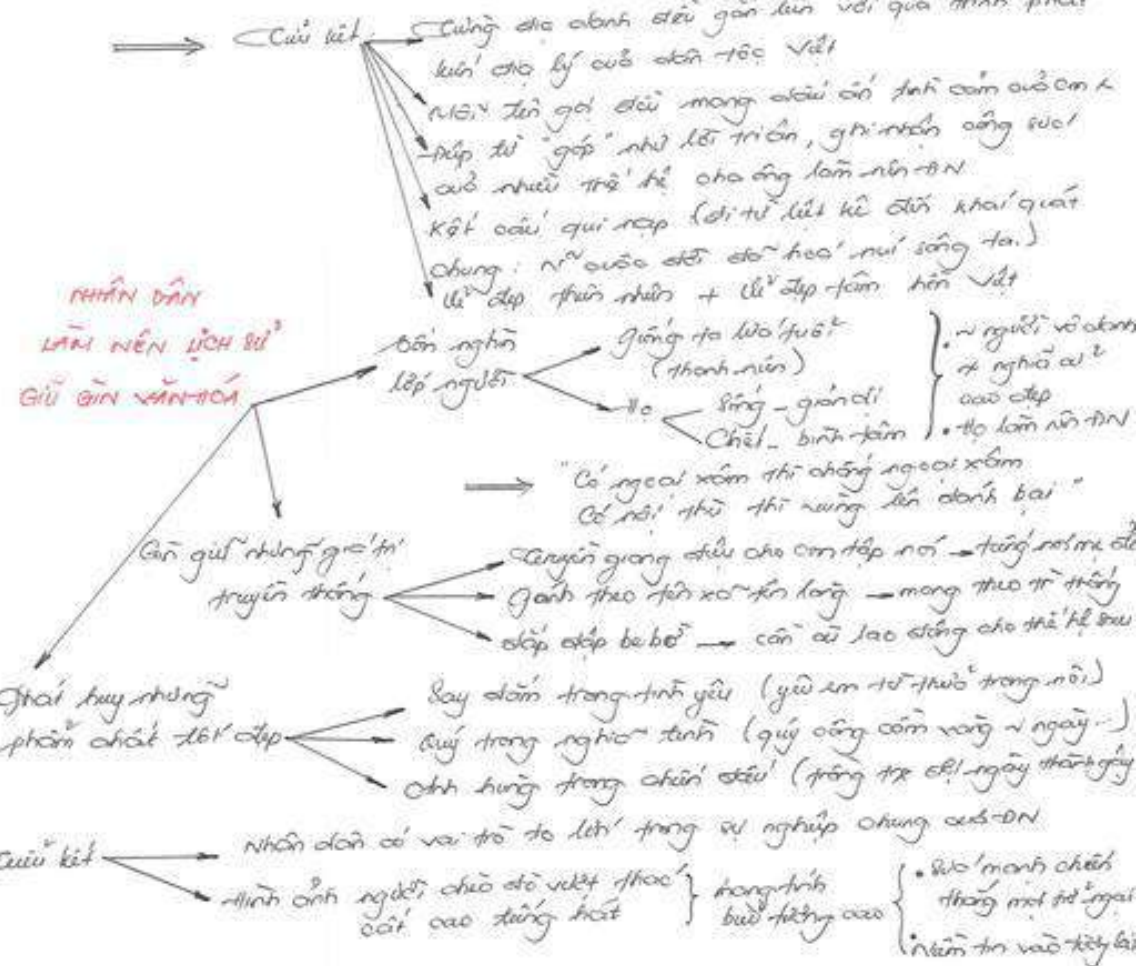 Tiểu kết
Từng địa danh đều gắn liền với quá trình phát
kiến địa lý của dân tộc Việt
Mỗi tên gọi đều mang dấu ấn tình cảm của
Điệp từ "góp" như lời tri ân, ghi nhận công sức
của nhiều thế hệ cha ông làm nên ĐN
Kết cấu qui nạp (đi từ liệt kê đến khái quát
chung: N~ cuộc đời đã hoá núi sông ta.)
Vẻ đẹp thiên nhiên + vẻ đẹp tâm hồn Việt
NHÂN DÂN
LÀM NÊN LỊCH SỬ
GIỮ GÌN VĂN HOÁ
Bốn nghìn
lớp người
giống ta lứa tuổi
(thanh niên)
Họ
Sống - giản dị
Chết - bình tâm
• ~ người vô danh
nghĩa cử
cao đẹp
• Họ làm nên ĐN
"Có ngoại xâm thì chống ngoại xâm
Có nội thù thì vùng lên đánh bại"
Gìn giữ những giá trị
truyền thống
Truyền giọng điệu cho con tập nói → tiếng nói mẹ đẻ
Gánh theo tên xã tên làng → mang theo
đắp đập be bờ → cần cù lao động cho thế hệ sau
Phát huy những
phẩm chất tốt đẹp
Say đắm trong tình yêu (yêu em từ thuở trong nôi)
Quý trọng nghĩa tình (quý công cầm vàng ~ ngày...)
Anh hùng trong chiến đấu (trồng tre đợi ngày thành gậy
Tiểu kết
Nhân dân có vai trò to lớn trong sự nghiệp chung của ĐN
Hình ảnh người chèo đò vượt thác
cất cao tiếng hát
mang tính
biểu tượng cao
• Sức mạnh chiến
thắng mọi trở ngại
• Niềm tin vào